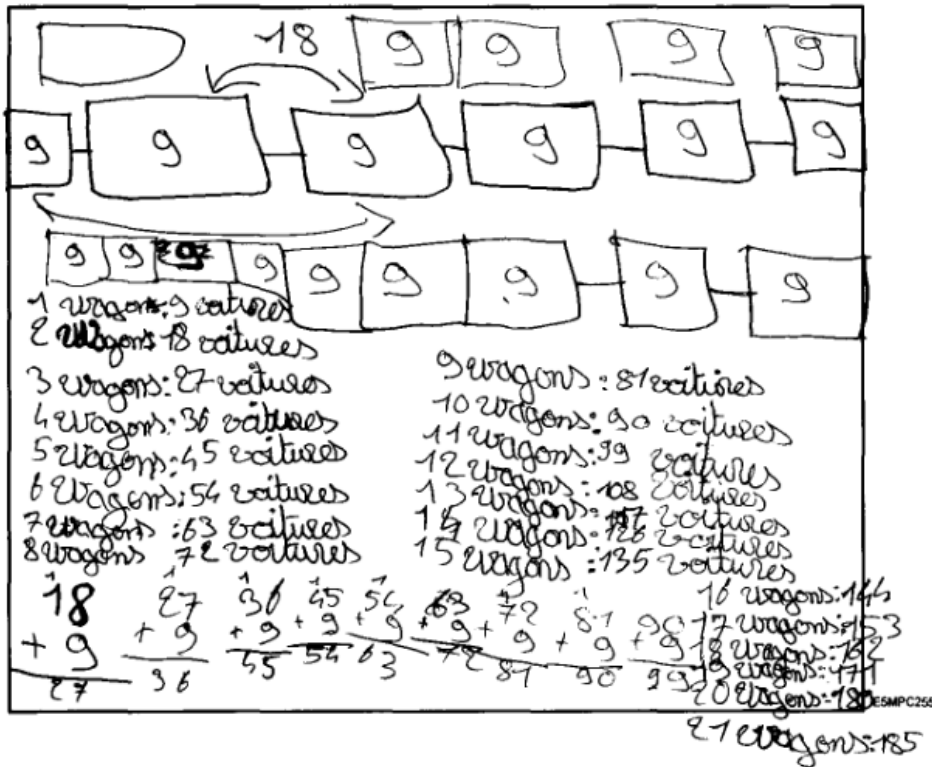 18 9 9 9 9
9 9 9 9 9 9
9 9 9 9 9 9 9 9
1 wagon: 9 voitures
2 wagons 18 voitures
3 wagons: 27 voitures
4 wagons: 36 voitures
5 wagons: 45 voitures
6 wagons: 54 voitures
7 wagons: 63 voitures
8 wagons 72 voitures
9 wagons: 81 voitures
10 wagons: 90 voitures
11 wagons: 99 voitures
12 wagons: 108 voitures
13 wagons: 117 voitures
14 wagons: 126 voitures
15 wagons: 135 voitures
16 wagons: 144
17 wagons: 153
18 wagons: 162
19 wagons: 171
20 wagons: 180
21 wagons: 185
1 1 1 1 1 1 1
18 27 36 45 54 63 72 81 90
+ 9 + 9 + 9 + 9 + 9 + 9 + 9 + 9 + 9
27 36 45 54 63 72 81 90 99
E5MPC255